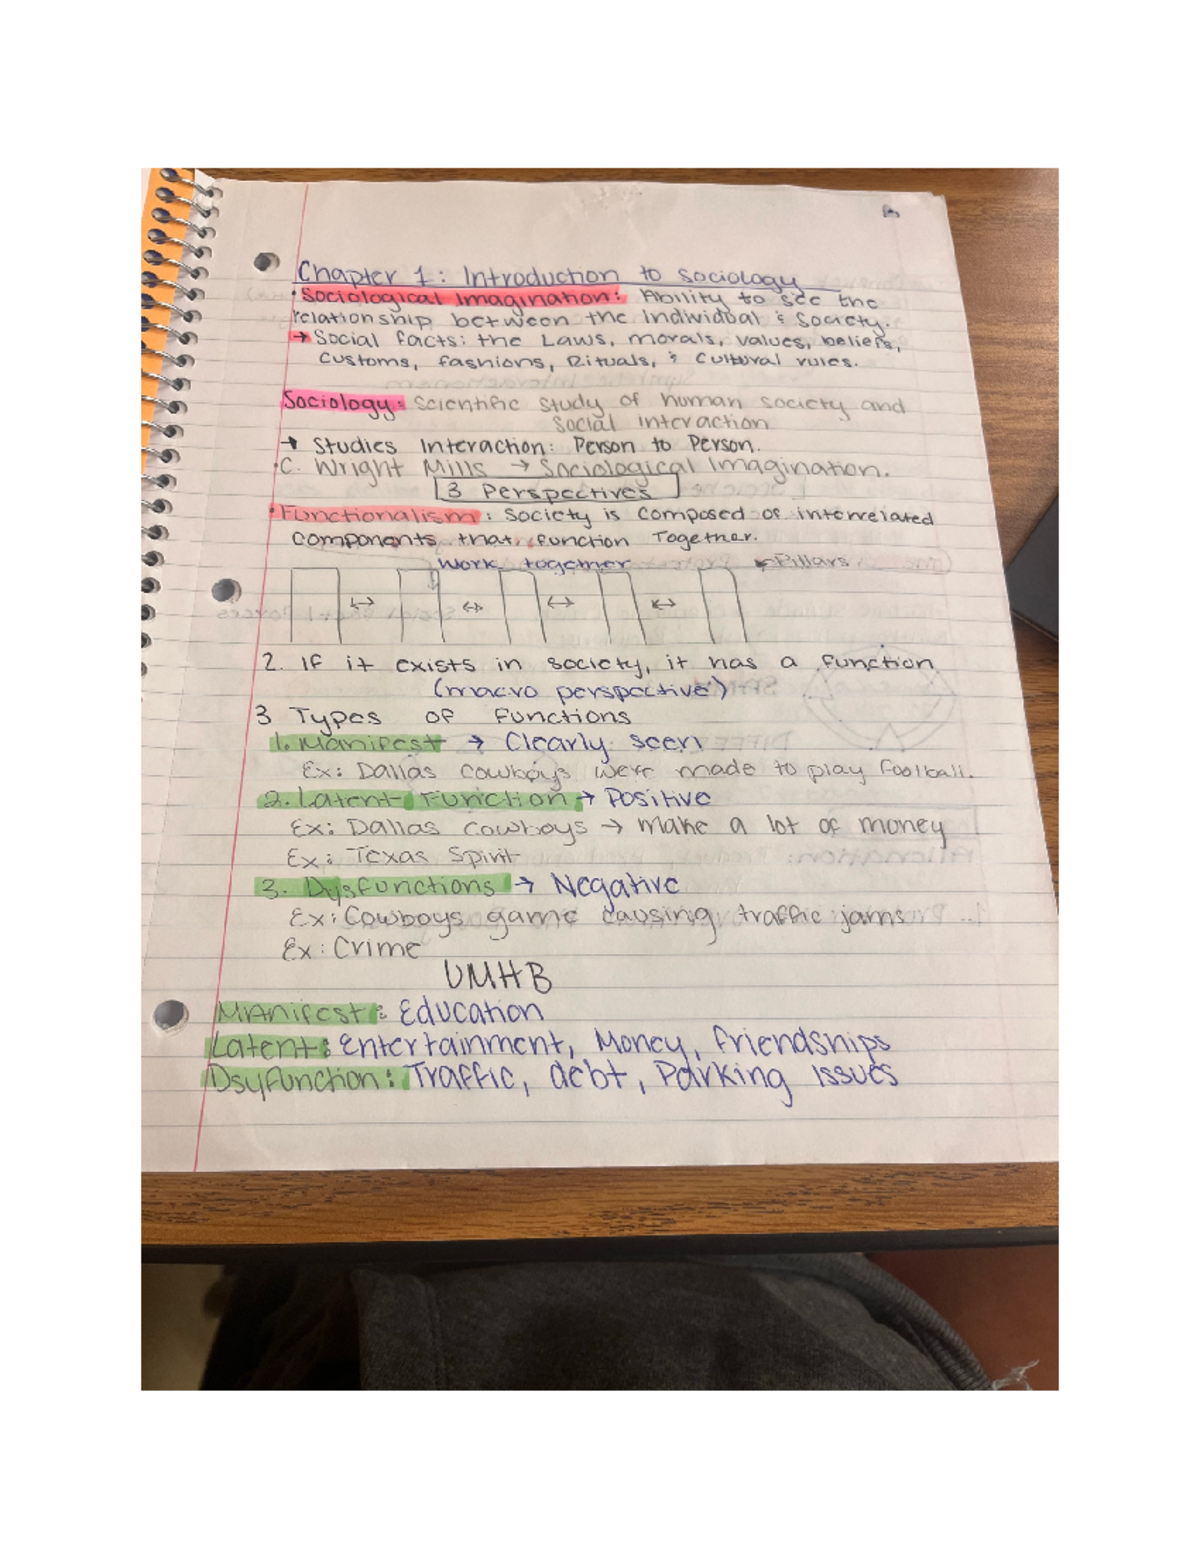 Chapter 1: Introduction to Sociology
• Sociological Imagination: Ability to see the
relationship between the Individual & Society.
→ Social facts: the Laws, morals, values, beliefs,
customs, fashions, Rituals, & Cultural rules.
Sociology: Scientific study of human society and
Social interaction
→ Studies Interaction: Person to Person.
• C. Wright Mills → Sociological Imagination.
3 Perspectives
• Functionalism: Society is composed of interrelated
components that function Together.
Work together ← Pillars
2. If it exists in society, it has a function
(macro perspective)
3 Types of functions
1. Manifest → Clearly seen
Ex: Dallas Cowboys were made to play football.
2. Latent Function → Positive
Ex: Dallas Cowboys → make a lot of money
Ex: Texas Spirit
3. Dysfunctions → Negative
Ex: Cowboys game causing traffic jams
Ex: Crime
UMHB
Manifest: Education
Latent: Entertainment, Money, friendships
Dsyfunction: Traffic, debt, Parking issues